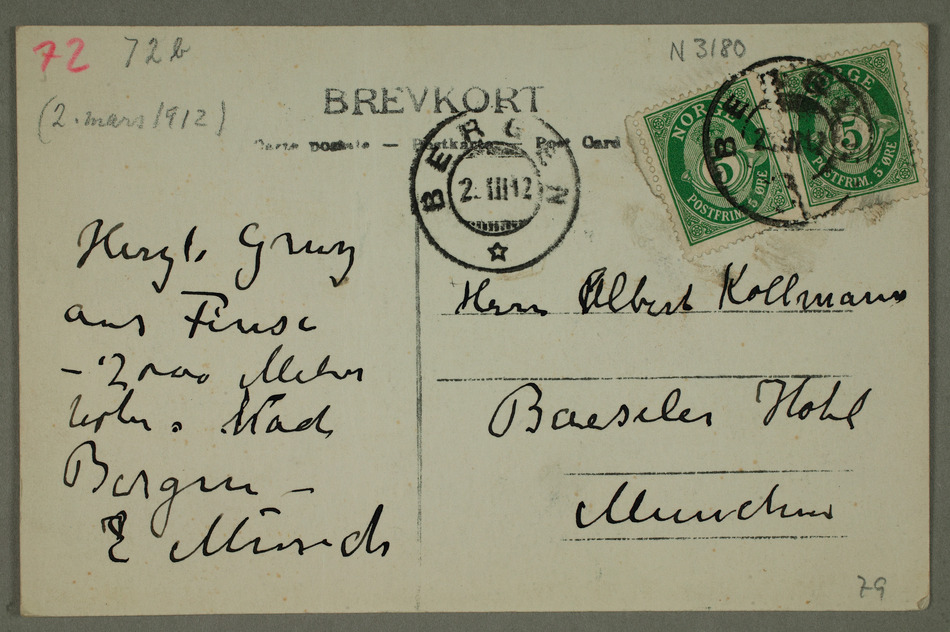 72 72b
N 3180
(2. mars 1912)
BREVKORT
Carte postale — Postkarte — Post Card
BERGEN
2. III 12
NORGE
5
POSTFRIM. 5 ØRE
NORGE
5
POSTFRIM. 5 ØRE
BERGEN
2. III 12
Herzl. Gruz
aus Finse
- 2000 Meter
höher. Nach
Bergen -
E Munch
Herrn Albert Kollmann
Baeseler Hotel
München
79